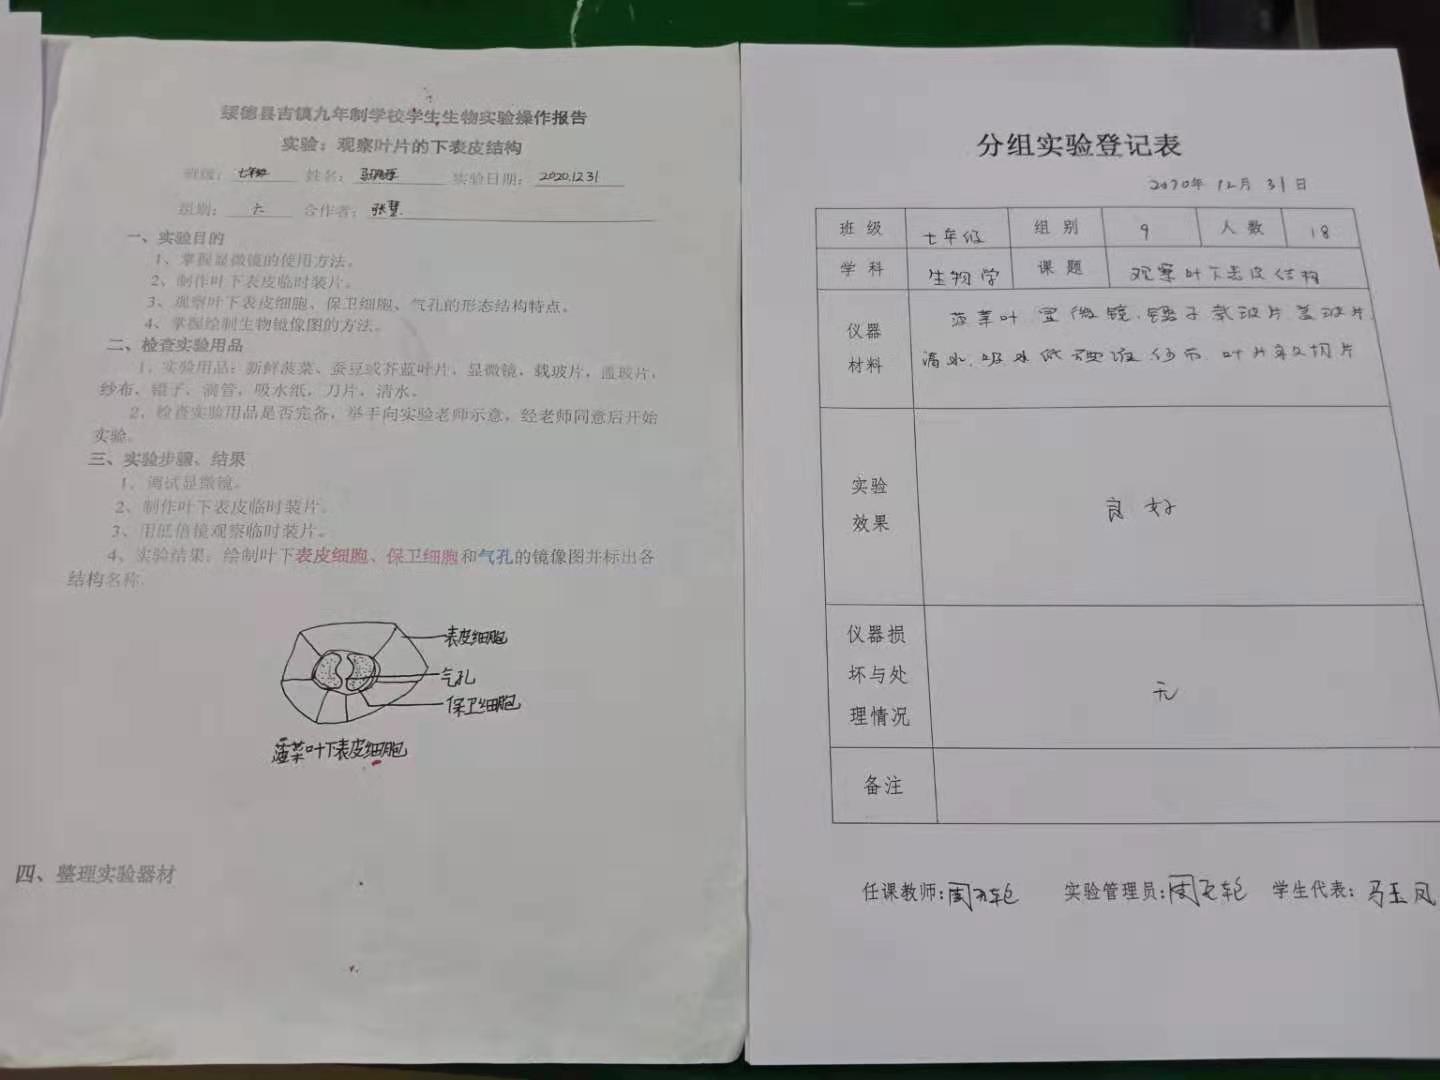 绥德县吉镇九年制学校学生生物实验操作报告
实验：观察叶片的下表皮结构
班级：七年级 姓名： 实验日期：2020.12.31
组别：六 合作者：张慧
一、实验目的
1、掌握显微镜的使用方法。
2、制作叶下表皮临时装片。
3、观察叶下表皮细胞、保卫细胞、气孔的形态结构特点。
4、掌握绘制生物镜像图的方法。
二、检查实验用品
1、实验用品：新鲜菠菜、蚕豆或芥蓝叶片，显微镜，载玻片，盖玻片，
纱布，镊子，滴管，吸水纸，刀片，清水。
2、检查实验用品是否完备，举手向实验老师示意，经老师同意后开始
实验。
三、实验步骤、结果
1、调试显微镜。
2、制作叶下表皮临时装片。
3、用低倍镜观察临时装片。
4、实验结果：绘制叶下表皮细胞、保卫细胞和气孔的镜像图并标出各
结构名称.
表皮细胞
气孔
保卫细胞
菠菜叶下表皮细胞
四、整理实验器材
分组实验登记表
2020年 12月 31日
班级 七年级 组别 9 人数 18
学科 生物学 课题 观察叶下表皮结构
仪器
材料
菠菜叶 显微镜.镊子 载玻片.盖玻片.
清水.吸水纸 碘液.纱布.叶片永久切片
实验
效果
良好
仪器损
坏与处
理情况
无
备注
任课教师: 实验管理员: 学生代表：马玉凤